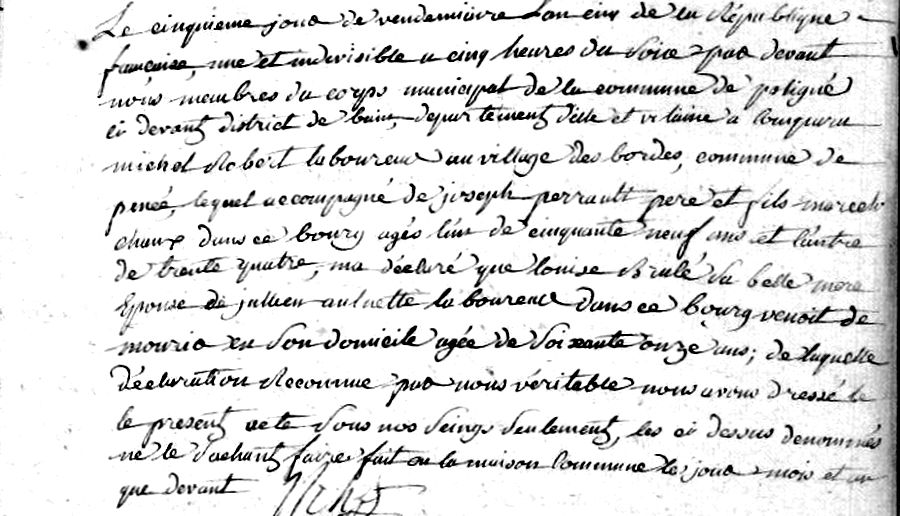 Le cinquieme jour de vendemiaire l'an cinq de la République
francaise, une et indivisible a cinq heures du soir par devant
nous membres du corps municipal de la commune de poligné
ci devant district de bain, departement d'ille et vilaine a comparu
michel Robert laboureur au village des bordes, commune de
pencé, lequel accompagné de joseph perrault pere et fils marechaux
chaux dans ce bourg agés l'un de cinquante neuf ans et l'autre
de trente quatre, m'a déclaré que louise Brulé sa belle mere
Epouse de jullien aulnette laboureur dans ce bourg venoit de
mourir en son domicile agée de soixante onze ans; de laquelle
déclaration Reconnue par nous véritable nous avons dressé le
le present acte sous nos seings seulement, les ci dessus denommés
ne le sachant faire fait en la maison commune les jour mois et an
que devant